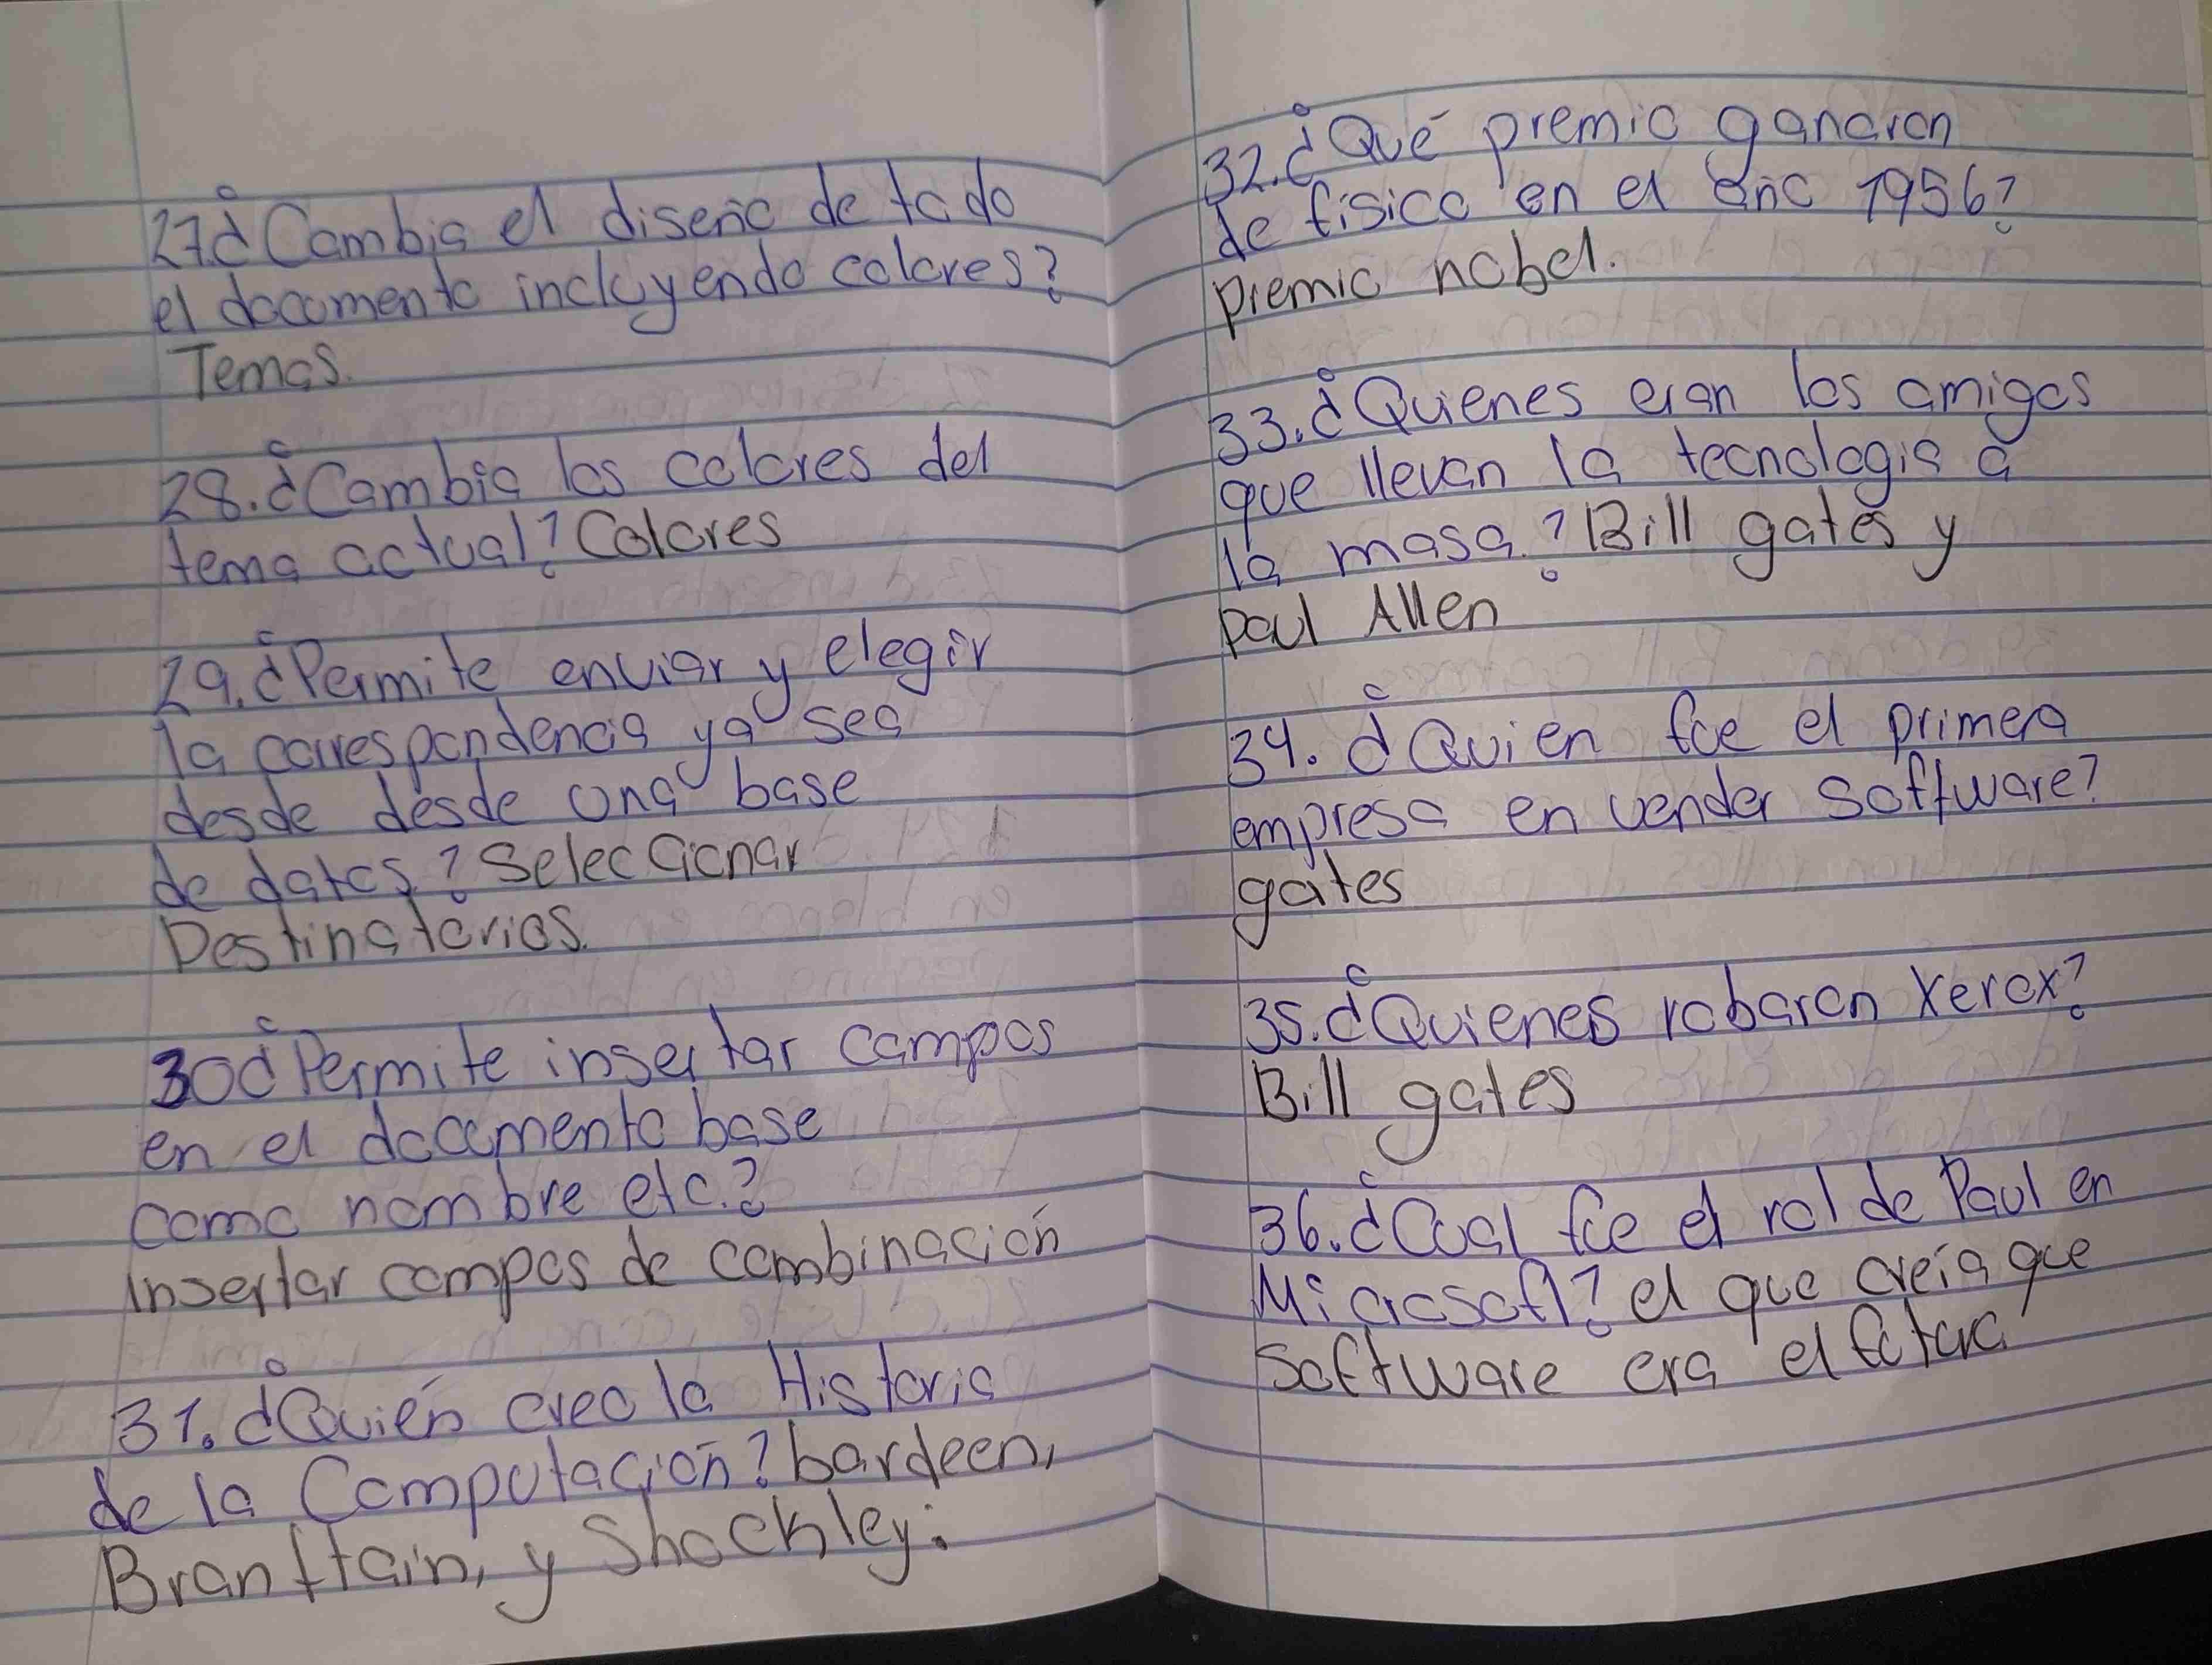 27.¿Cambia el diseño de todo
el documento incluyendo colores?
Temas.
28.¿Cambia los colores del
tema actual? Colores
29.¿Permite enviar y elegir
la correspondencia ya sea
desde desde una base
de datos? Seleccionar
Destinatarios.
30¿Permite insertar campos
en el documento base
como nombre etc.?
Insertar campos de combinación
31.¿Quién creo la Historia
de la Computación? bardeen,
Branttain, y Shockley.
32.¿Qué premio ganaron
de física en el año 1956?
premio nobel.
33.¿Quienes eran los amigos
que llevan la tecnologia a
la masa.? Bill gates y
Paul Allen
34. ¿Quien fue el primera
empresa en vender Software?
gates
35.¿Quienes robaron Xerox?
Bill gates
36.¿Cual fue el rol de Paul en
Microsoft? el que creía que
Software era el futuro